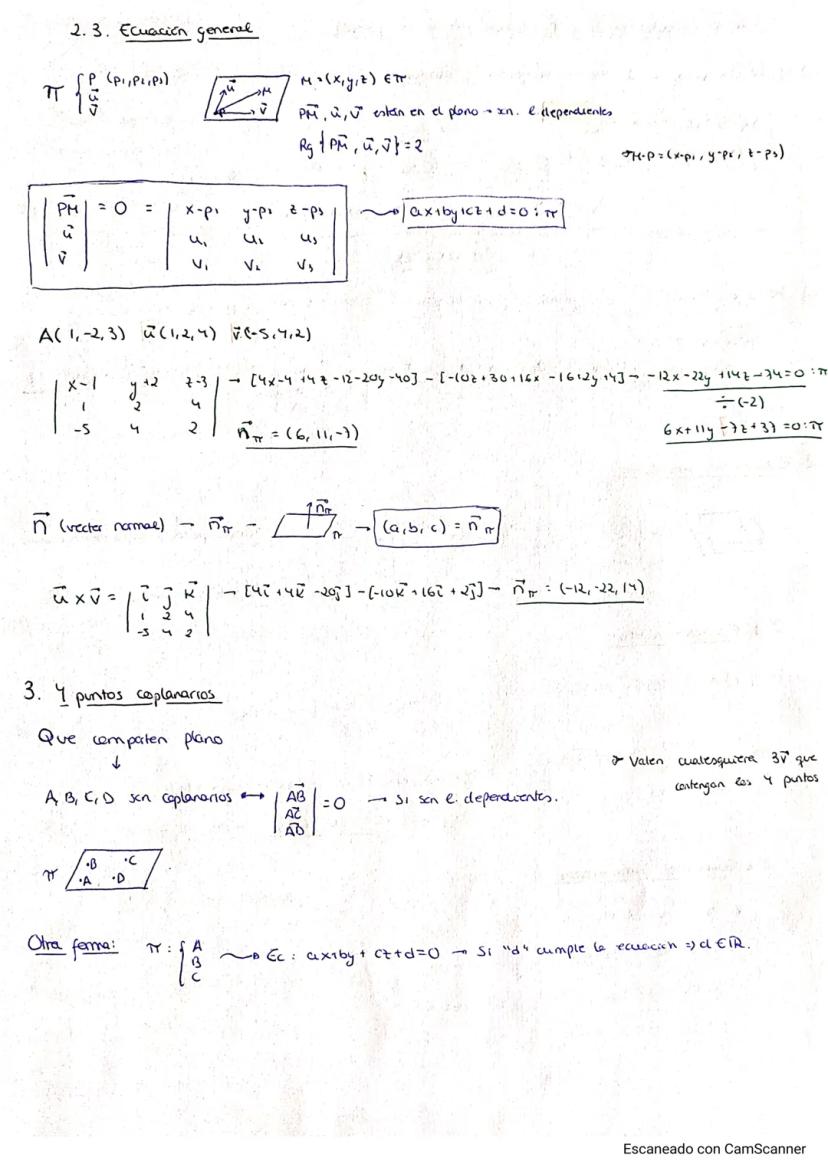 2.3. Ecuación general
π { P (p1,p2,p3)
u⃗
v⃗
u⃗ M
P v⃗
M = (x,y,z) ∈ π
PM⃗, u⃗, v⃗ están en el plano → sn. l dependientes
Rg { PM⃗, u⃗, v⃗ } = 2
M-P = (x-p1, y-p2, z-p3)
| PM⃗ | = 0 = | x-p1 y-p2 z-p3 | ⟿ ax+by+cz+d=0 : π
| u⃗ | | u1 u2 u3 |
| v⃗ | | v1 v2 v3 |
A( 1, -2, 3) u⃗ (1, 2, 4) v⃗ (-5, 4, 2)
| x-1 y+2 z-3 | → [4x-4 +4z -12-20y -40] - [-10z+30+16x -16+2y +4] → -12x-22y +14z-74=0 : π
| 1 2 4 | ÷ (-2)
| -5 4 2 | n⃗π = (6, 11, -7) 6x+11y-7z+37=0 : π
n⃗ (vector normal) → n⃗π → n⃗π π → (a, b, c) = n⃗π
u⃗ x v⃗ = | i⃗ j⃗ k⃗ | → [4i⃗ +4k⃗ -20j⃗] - [-10k⃗ +16i⃗ +2j⃗] → n⃗π = (-12, -22, 14)
| 1 2 4 |
| -5 4 2 |
3. 4 puntos coplanarios
Que comparten plano
↓
A, B, C, D son coplanarios ↔ | AB⃗ | = 0 → Si son l. dependientes.
| AC⃗ |
| AD⃗ |
Valen cualesquiera 3v⃗ que
contengan los 4 puntos
π ·B ·C
·A ·D
Otra forma: π : { A ⟿ Ec : ax+by + cz+d=0 → Si "d" cumple la ecuación ⇒ d ∈ π.
B
C
Escaneado con CamScanner